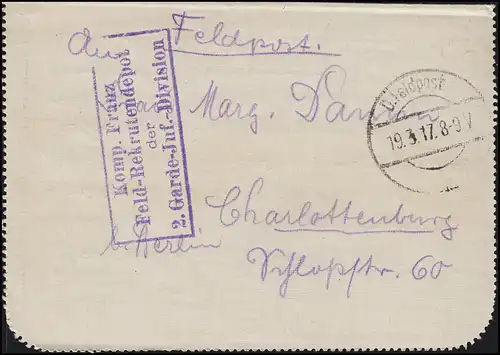 Feldpost.
An
Frau Marg.
Charlottenburg
b. Berlin
Schloßstr. 60
Komp. Franz
Feld-Rekrutendepot
der
2. Garde-Inf.-Division
D. Feldpost
19.3.17. 8-9 V